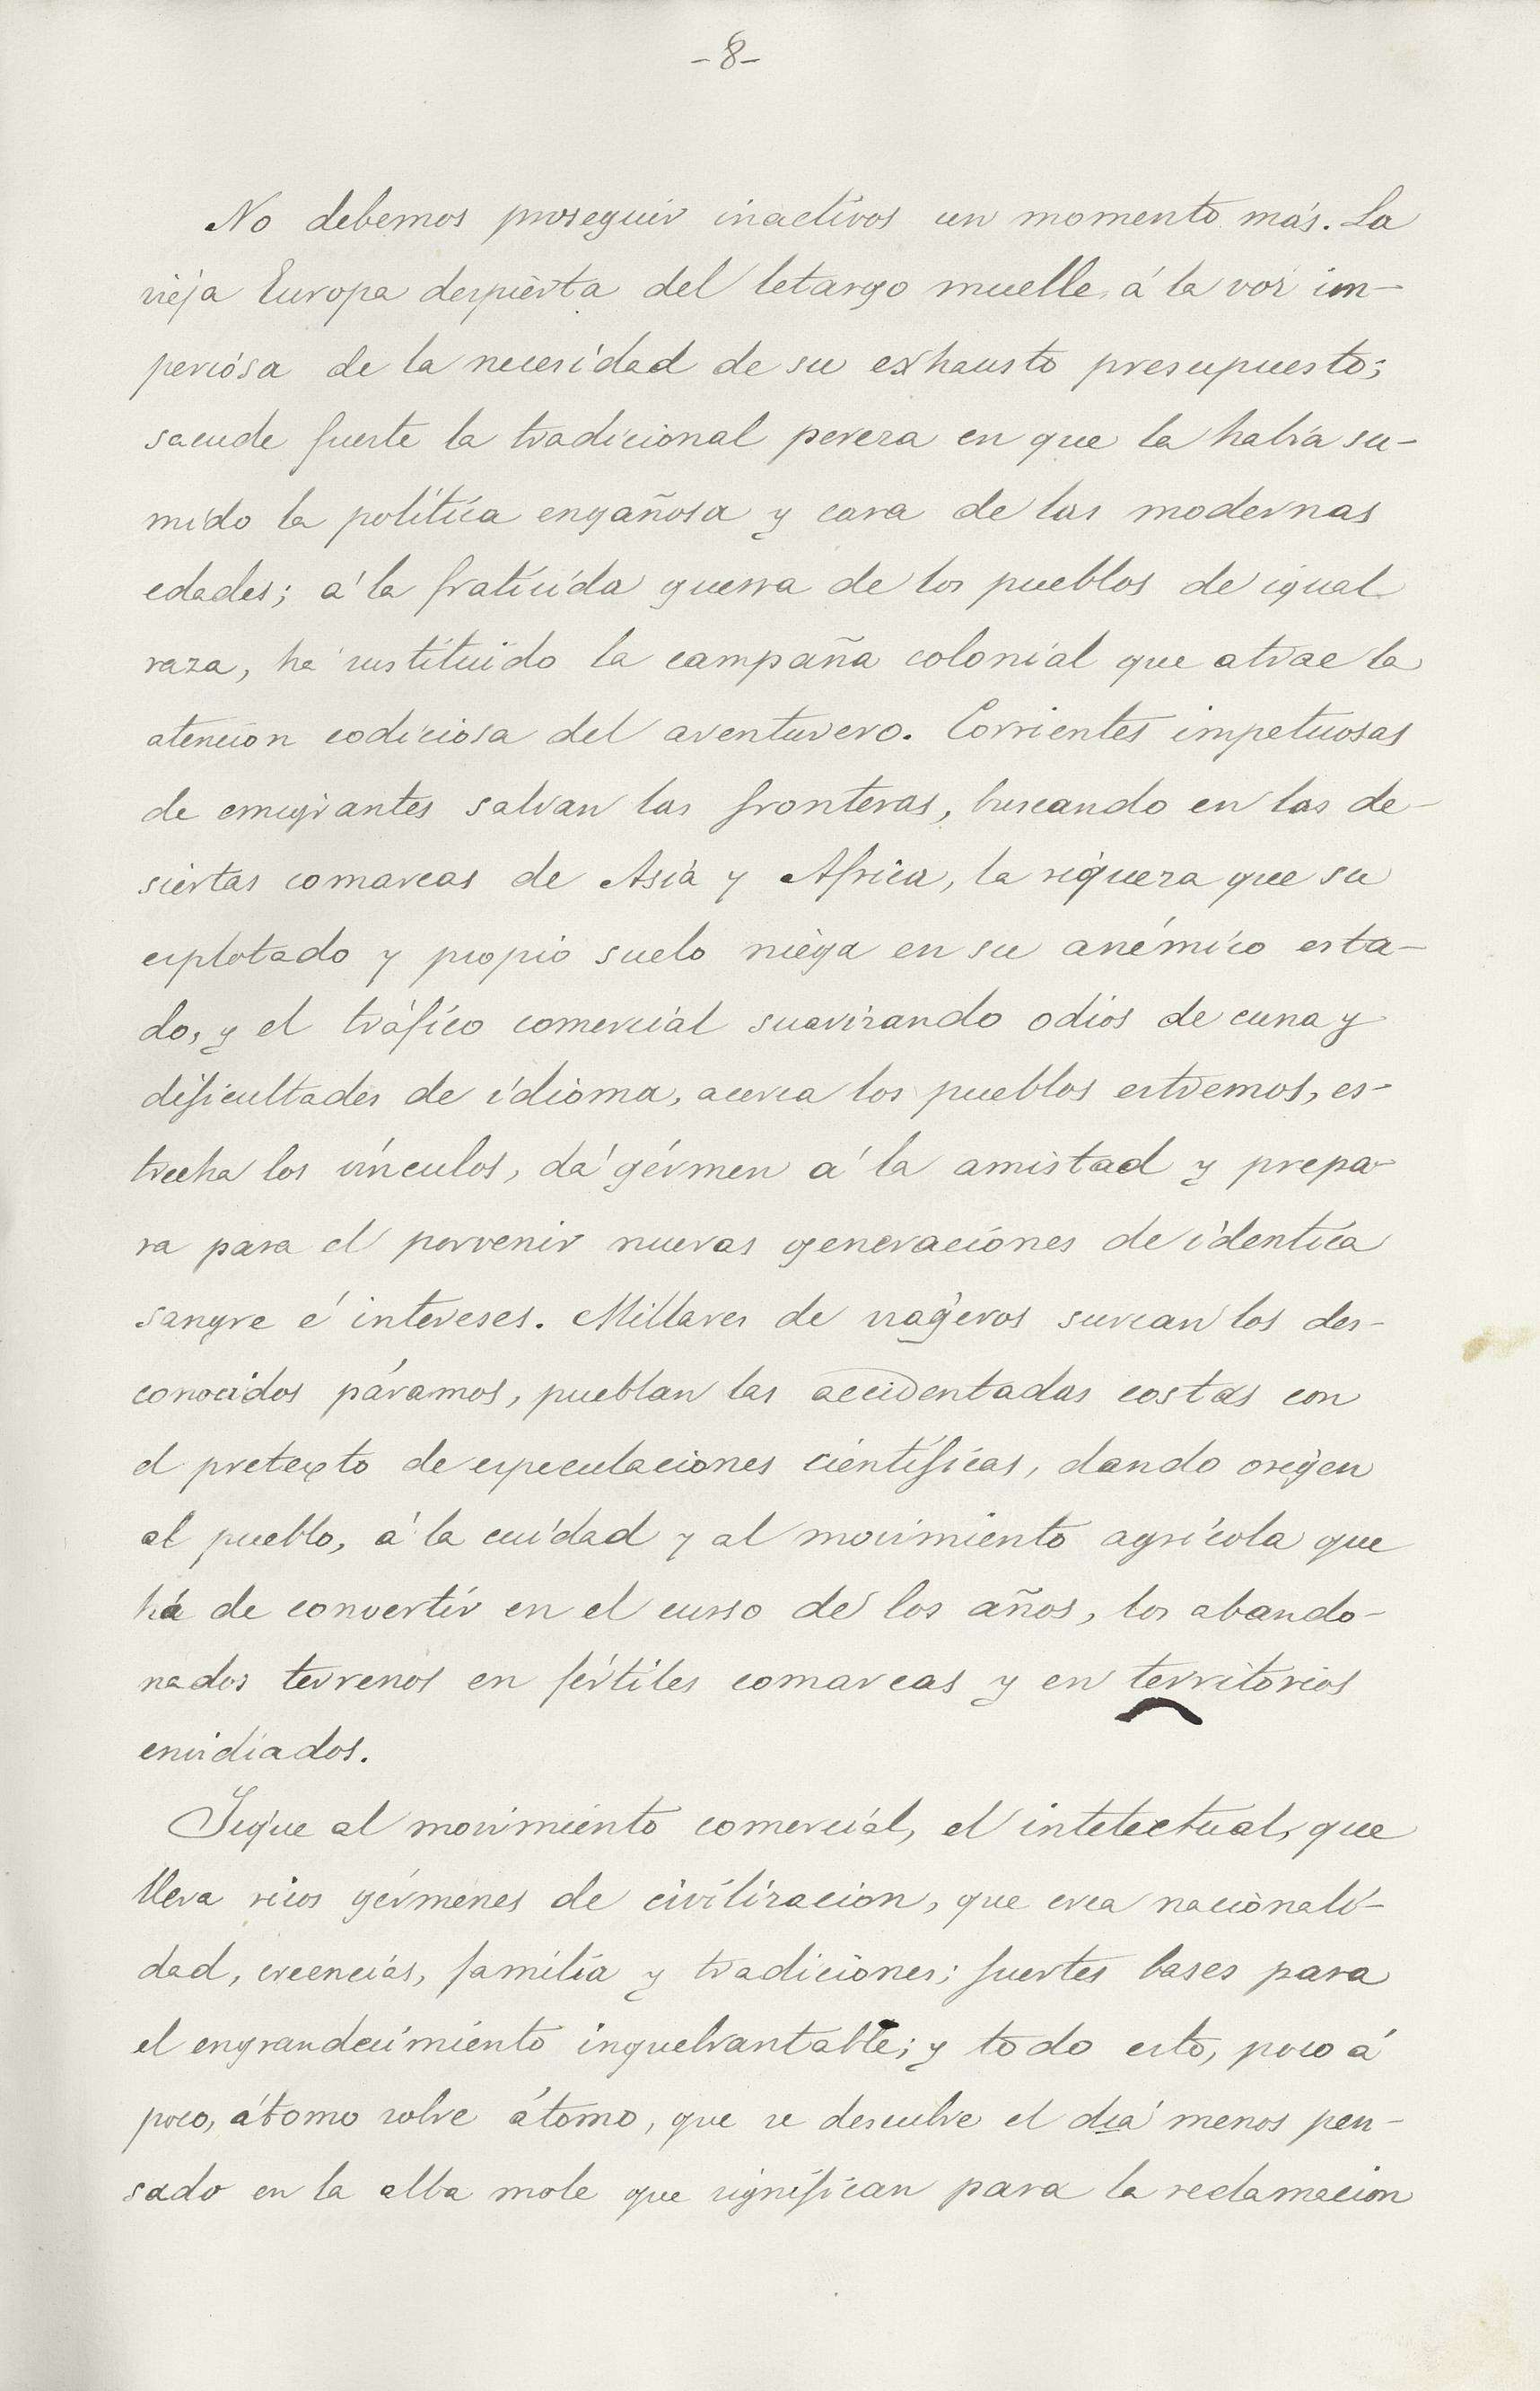 -8-
No debemos proseguir inactivos un momento más. La
vieja Europa despierta del letargo muelle, á la voz im-
periosa de la necesidad de su exhausto presupuesto;
sacude fuerte la tradicional pereza en que la habia su-
mido la politica engañosa y cara de las modernas
edades; á la fraticida guerra de los pueblos de igual
raza, ha sustituido la campaña colonial que atrae la
atencion codiciosa del aventurero. Corrientes impetuosas
de emigrantes salvan las fronteras, buscando en las de-
siertas comarcas de Asia y Africa, la riqueza que su
esplotado y propio suelo niega en su anémico esta-
do, y el tráfico comercial suavizando odios de cuna y
dificultades de idioma, acerca los pueblos estremos, es-
trecha los vínculos, dá gérmen á la amistad y prepa-
ra para el porvenir nuevas generaciones de identica
sangre é intereses. Millares de viageros surcan los des-
conocidos páramos, pueblan las accidentadas costas con
el pretexto de especulaciones científicas, dando origen
al pueblo, á la cuidad y al movimiento agrícola que
há de convertir en el curso de los años, los abando-
nados terrenos en fértiles comarcas y en territorios
envidiados.
Sigue al movimiento comercial, el intelectual, que
lleva ricos gérmenes de civilizacion, que crea nacionali-
dad, creencias, familia y tradiciones; fuertes bases para
el engrandecimiento inquebrantable; y todo esto, poco á
poco, átomo sobre átomo, que se descubre el dia menos pen-
sado en la alba mole que significan para la reclamacion